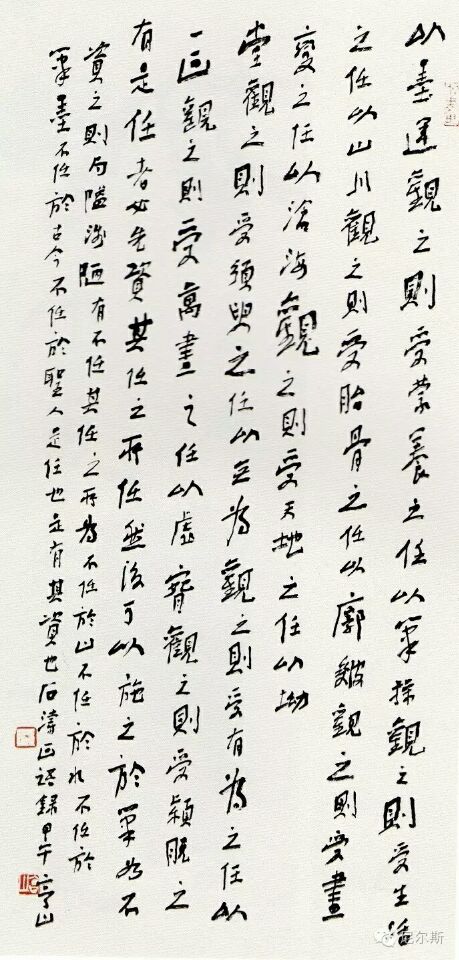 以墨運觀之則受蒙養之任以筆操觀之則受生活
之任以山川觀之則受胎骨之任以廓皴觀之則受畫
變之任以滄海觀之則受天地之任以坳
堂觀之則受須臾之任以无為觀之則受有為之任以
一画觀之則受萬畫之任以虛觀之則受穎脫之
有是任者必先資其任之所任然後可以施之於筆如不
資之則局隘淺陋有不任其任之所為不任於山不任於水不任於
筆墨不任於古今不任於聖人是任也是有其資也石濤画語錄甲午山
尼尔斯